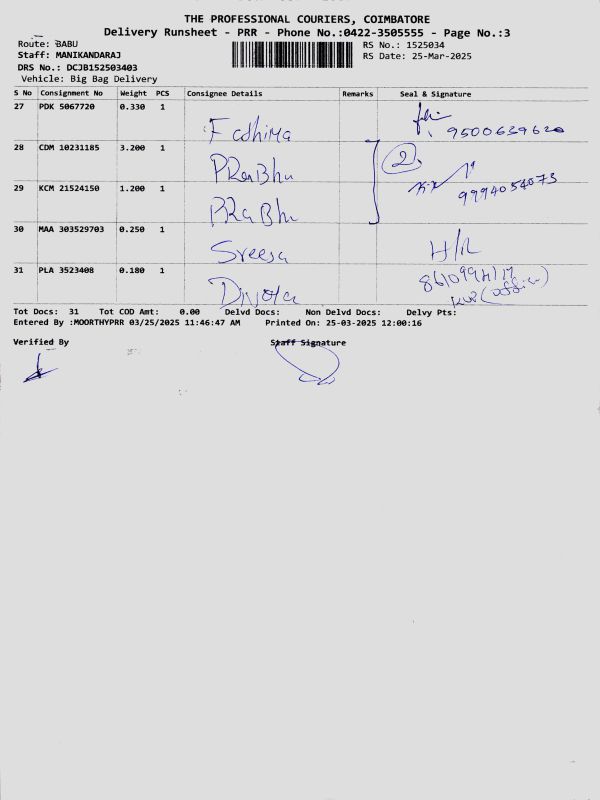 THE PROFESSIONAL COURIERS, COIMBATORE
Delivery Runsheet - PRR - Phone No.:0422-3505555 - Page No.:3
Route: BABU
RS No.: 1525034
Staff: MANIKANDARAJ
RS Date: 25-Mar-2025
DRS No.: DCJB152503403
Vehicle: Big Bag Delivery
S No Consignment No Weight PCS Consignee Details Remarks Seal & Signature
27 PDK 5067720 0.330 1 Fathima 9500639620
28 CDM 10231185 3.200 1 PRaBhu 2
29 KCM 21524150 1.200 1 PRaBhu 9994054073
30 MAA 303529703 0.250 1 Sreeja
31 PLA 3523408 0.180 1 (office)
Tot Docs: 31 Tot COD Amt: 0.00 Delvd Docs: Non Delvd Docs: Delvy Pts:
Entered By :MOORTHYPRR 03/25/2025 11:46:47 AM Printed On: 25-03-2025 12:00:16
Verified By Staff Signature